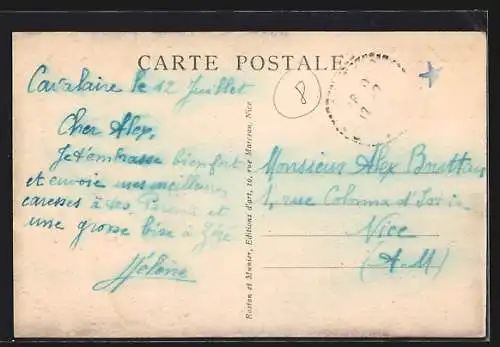 CARTE POSTALE
Cavalaire le 12 Juillet
Cher Alex,
Je t'embrasse bien fort
et envoie mes meilleures
caresses à tes Parents et
une grosse bise à
Hélène
Rostan et Munier, Editions d'art, rue Nice
8
Monsieur Alex
1, rue Colonna d'Istria
Nice
(A-M)